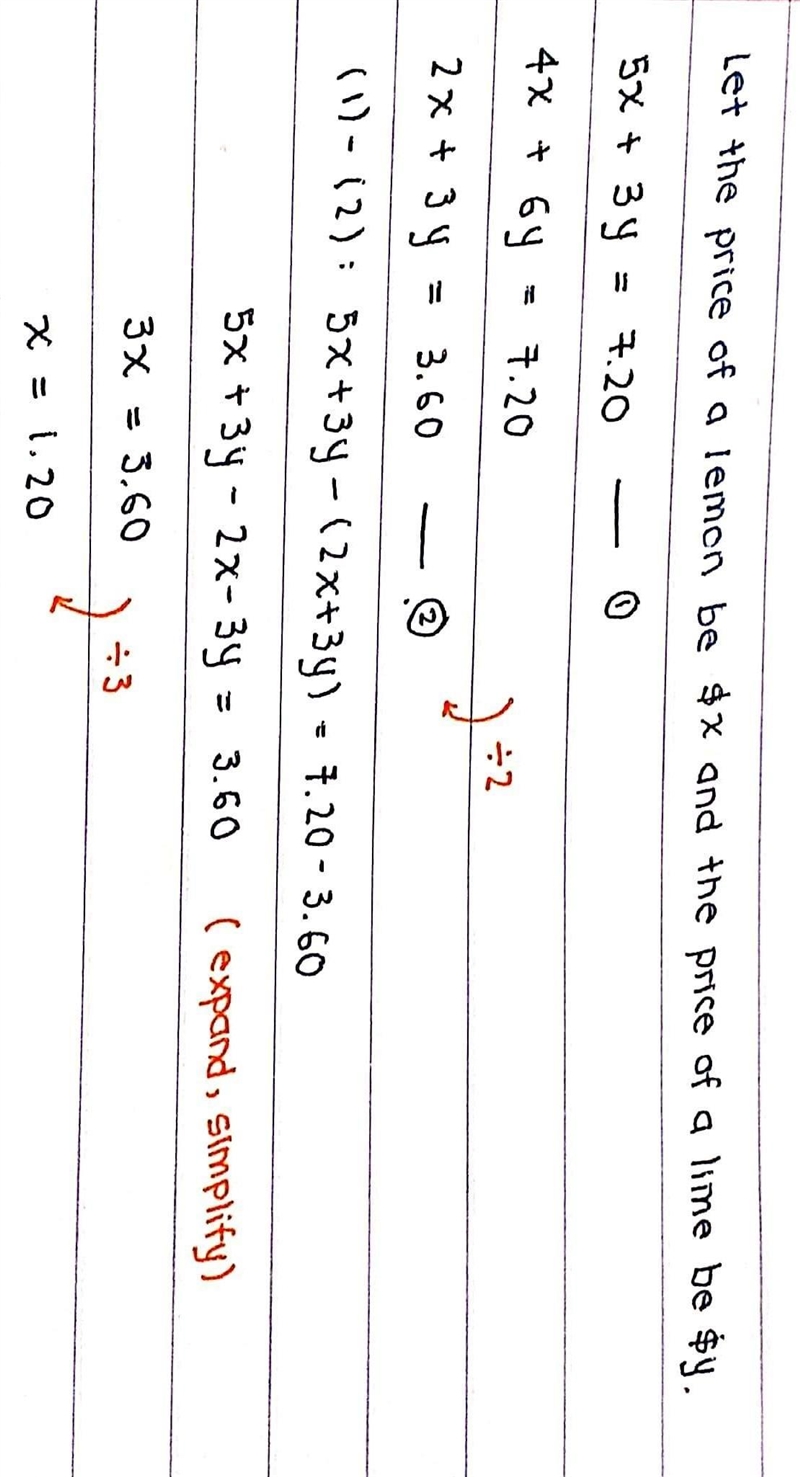 Let the price of a lemon be $x and the price of a lime be $y.
5x + 3y = 7.20 — ①
4x + 6y = 7.20
÷2
2x + 3y = 3.60 — ②
(1) - (2): 5x+3y-(2x+3y) = 7.20-3.60
5x+3y-2x-3y = 3.60 (expand, simplify)
3x = 3.60
÷3
x = 1.20